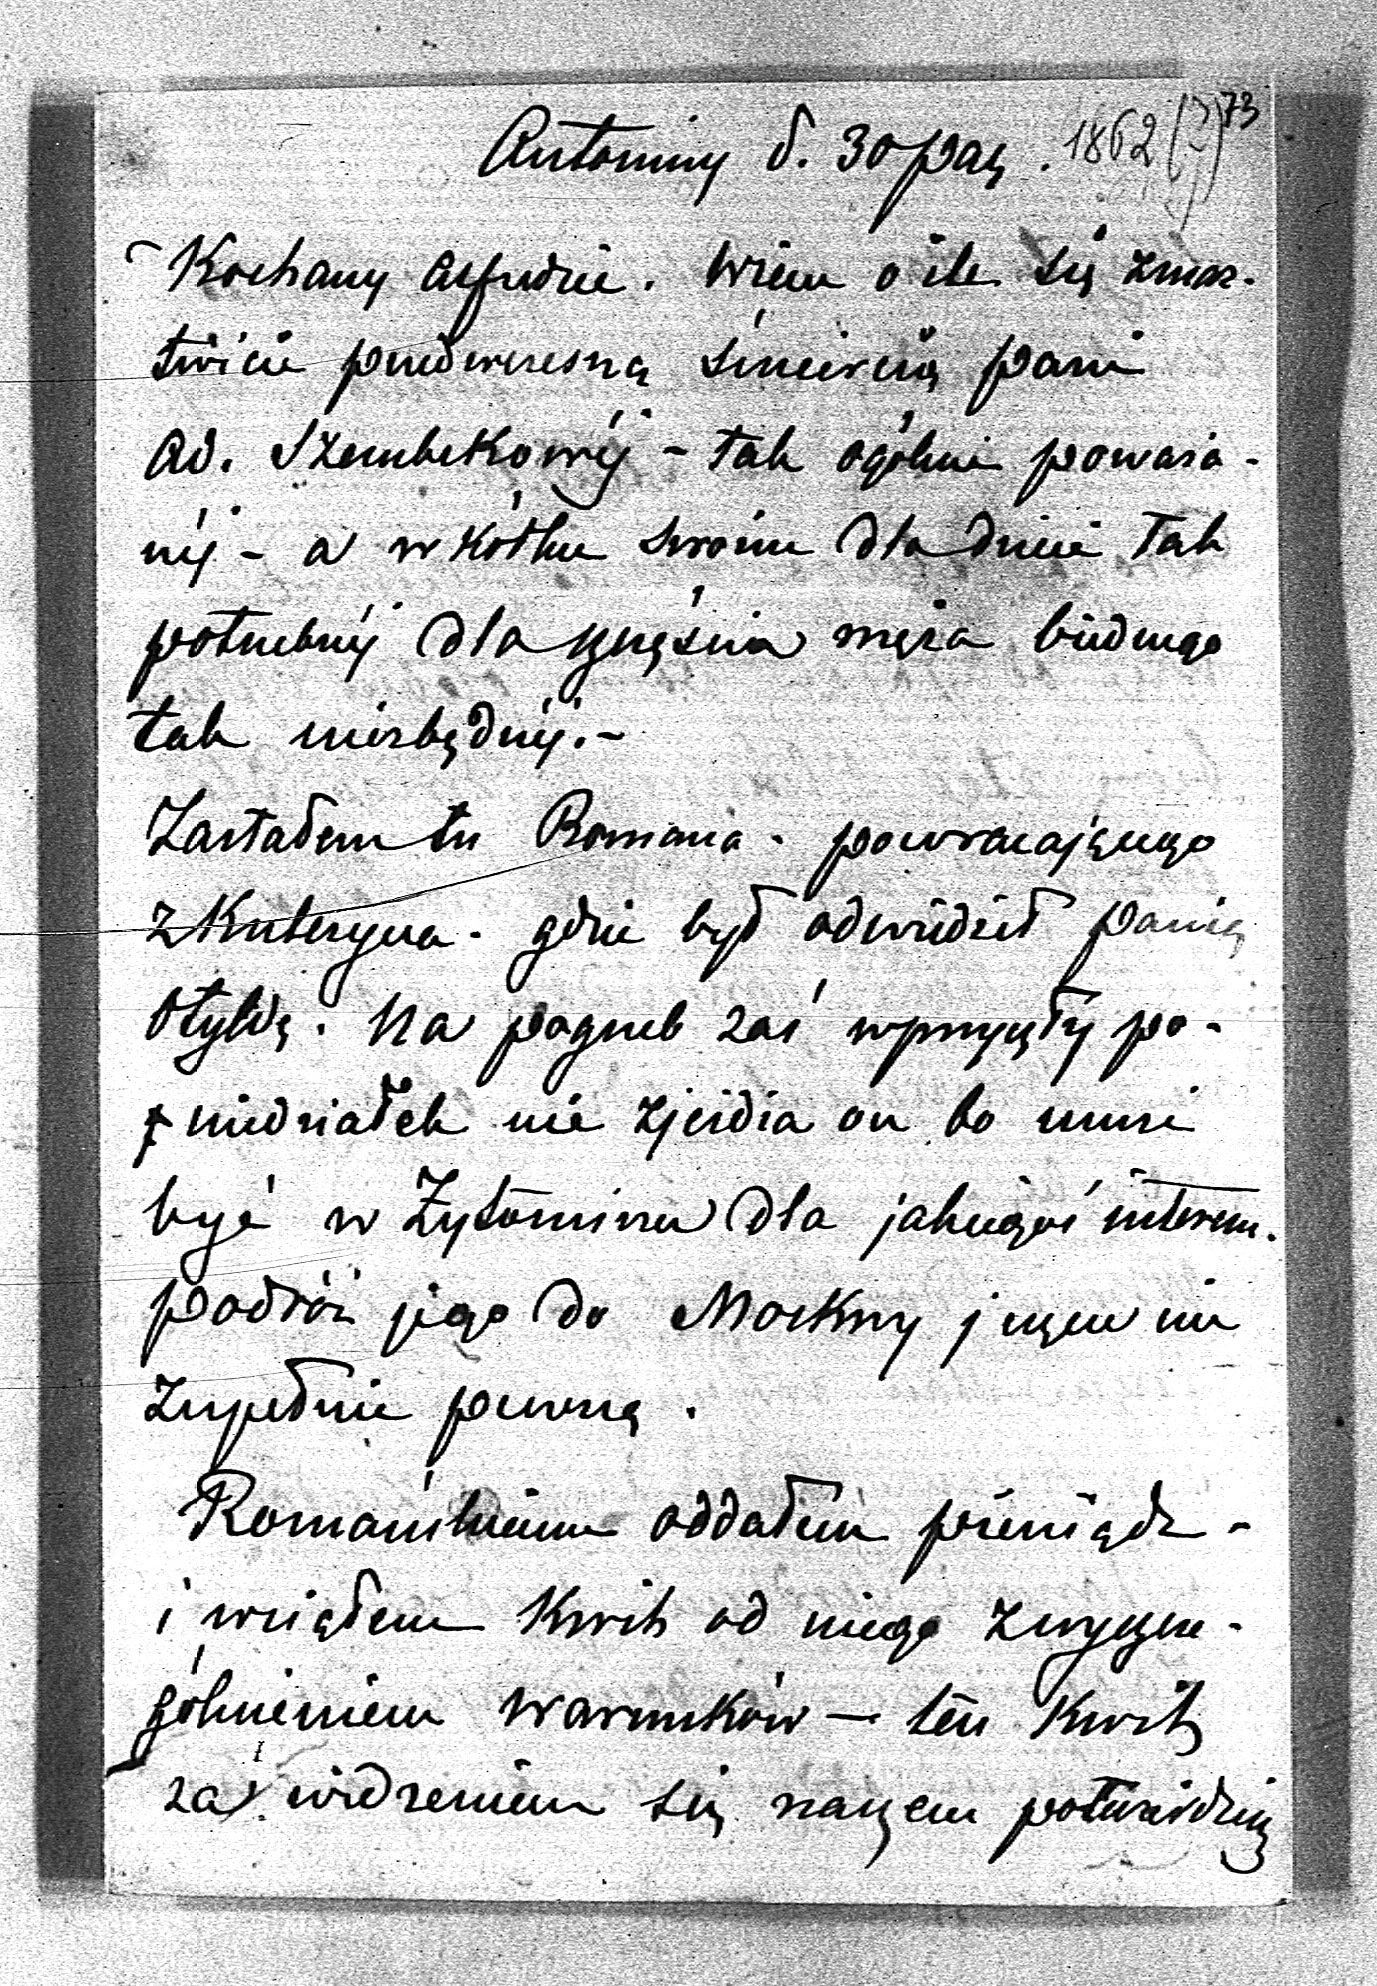 Antoniny d. 30 paź. 1862 (?) 73
Kochany Alfredzie. Wiem o ile się zmar-
twicie przedwczesną śmiercią pani
Ad. Szembekowéj - tak ogólnie poważa-
néj - a w kółku swoim dla dzieci tak
potrzebnéj dla szczęścia męża biednego
tak niezbędnéj. -
Zastałem tu Romana - powracającego
z gdzie był odwiedzić panią
Otylię. Na pogrzeb zaś w przyszły po-
niedziałek nie zjeżdża on bo musi
być w Żytomirzu dla jakiegoś interesu.
podróż jego do Moskwy jeszcze nie
zupełnie pewną.
Romańskiemu oddałem pieniądze -
i wziąłem Kwit od niego z wyszcze-
gólnieniem warunków — ten Kwit
za widzeniem się naszem potwierdzisz